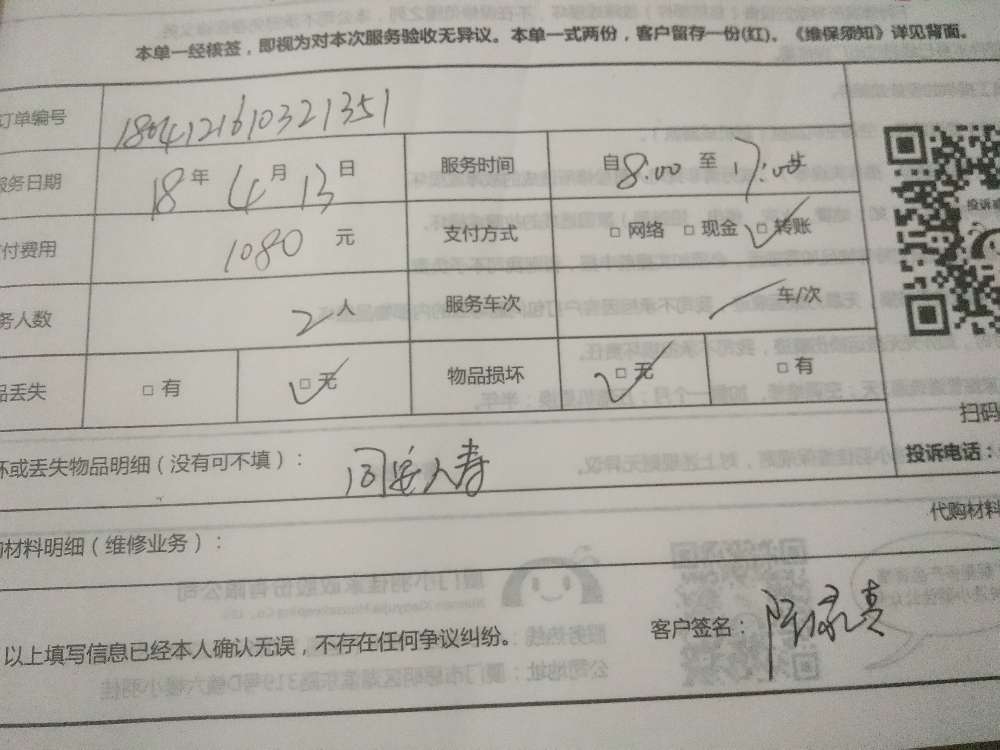 本单一经核签，即视为对本次服务验收无异议。本单一式两份，客户留存一份(红)。《维保须知》详见背面。
订单编号 180412161032 1351
服务日期 18 年 4 月 13 日 服务时间 自 8:00 至 17:00 止
付费用 1080 元 支付方式 □ 网络 □ 现金 □ 转账
务人数 2 人 服务车次 车/次
品丢失 □ 有 □ 无 物品损坏 □ 无 □ 有
投诉
扫码
坏或丢失物品明细（没有可不填）： 同安人寿
投诉电话：
代购材料
购材料明细（维修业务）：
以上填写信息已经本人确认无误，不存在任何争议纠纷。 客户签名：